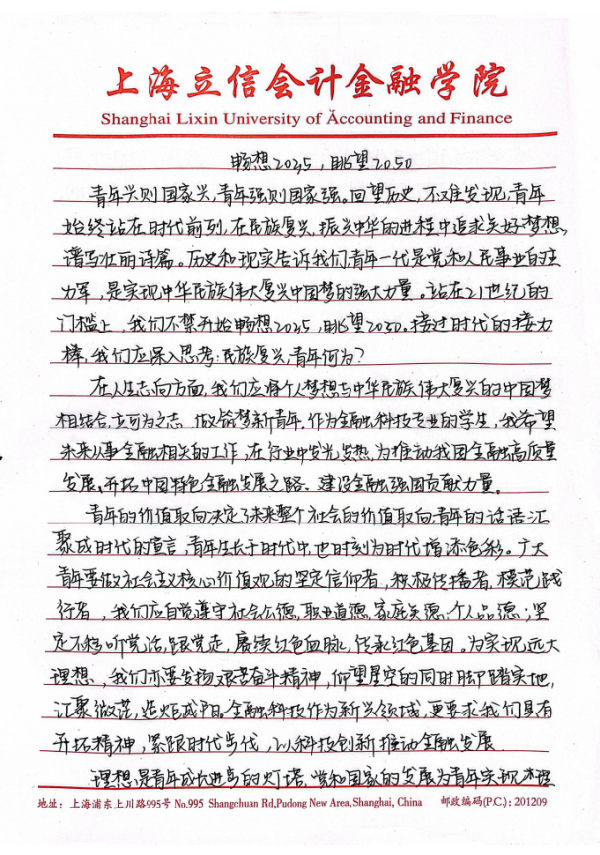 上海立信会计金融学院
Shanghai Lixin University of Accounting and Finance
畅想2035,眺望2050
青年兴则国家兴,青年强则国家强。回望历史,不难发现,青年
始终站在时代前列,在民族复兴、振兴中华的进程中追求美好梦想,
谱写壮丽诗篇。历史和现实告诉我们青年一代是党和人民事业的主
力军,是实现中华民族伟大复兴中国梦的强大力量。站在21世纪的
门槛上,我们不禁开始畅想2035,眺望2050。接过时代的接力
棒,我们应深入思考:民族复兴,青年何为?
在人生志向方面,我们应将个人梦想与中华民族伟大复兴的中国梦
相结合,立可为之志,做筑梦新青年。作为金融科技专业的学生,我希望
未来从事金融相关的工作,在行业中发光发热,为推动我国金融高质量
发展,开拓中国特色金融发展之路、建设金融强国贡献力量。
青年的价值取向决定了未来整个社会的价值取向,青年的话语汇
聚成时代的宣言,青年生长于时代中,也时刻为时代增添色彩。广大
青年要做社会主义核心价值观的坚定信仰者,积极传播者,模范践
行者,我们应自觉遵守社会公德,职业道德,家庭美德,个人品德;坚
定不移听党话,跟党走,赓续红色血脉,传承红色基因。为实现远大
理想,我们亦要发扬艰苦奋斗精神,仰望星空的同时脚踏实地,
汇聚微茫,造炬成阳。金融科技作为新兴领域,更要求我们具有
开拓精神,紧跟时代步伐,以科技创新推动金融发展.
理想是青年成长进步的灯塔,党和国家的发展为青年实现理
地址:上海浦东上川路995号 No.995 Shangchuan Rd,Pudong New Area,Shanghai, China 邮政编码(P.C.): 201209